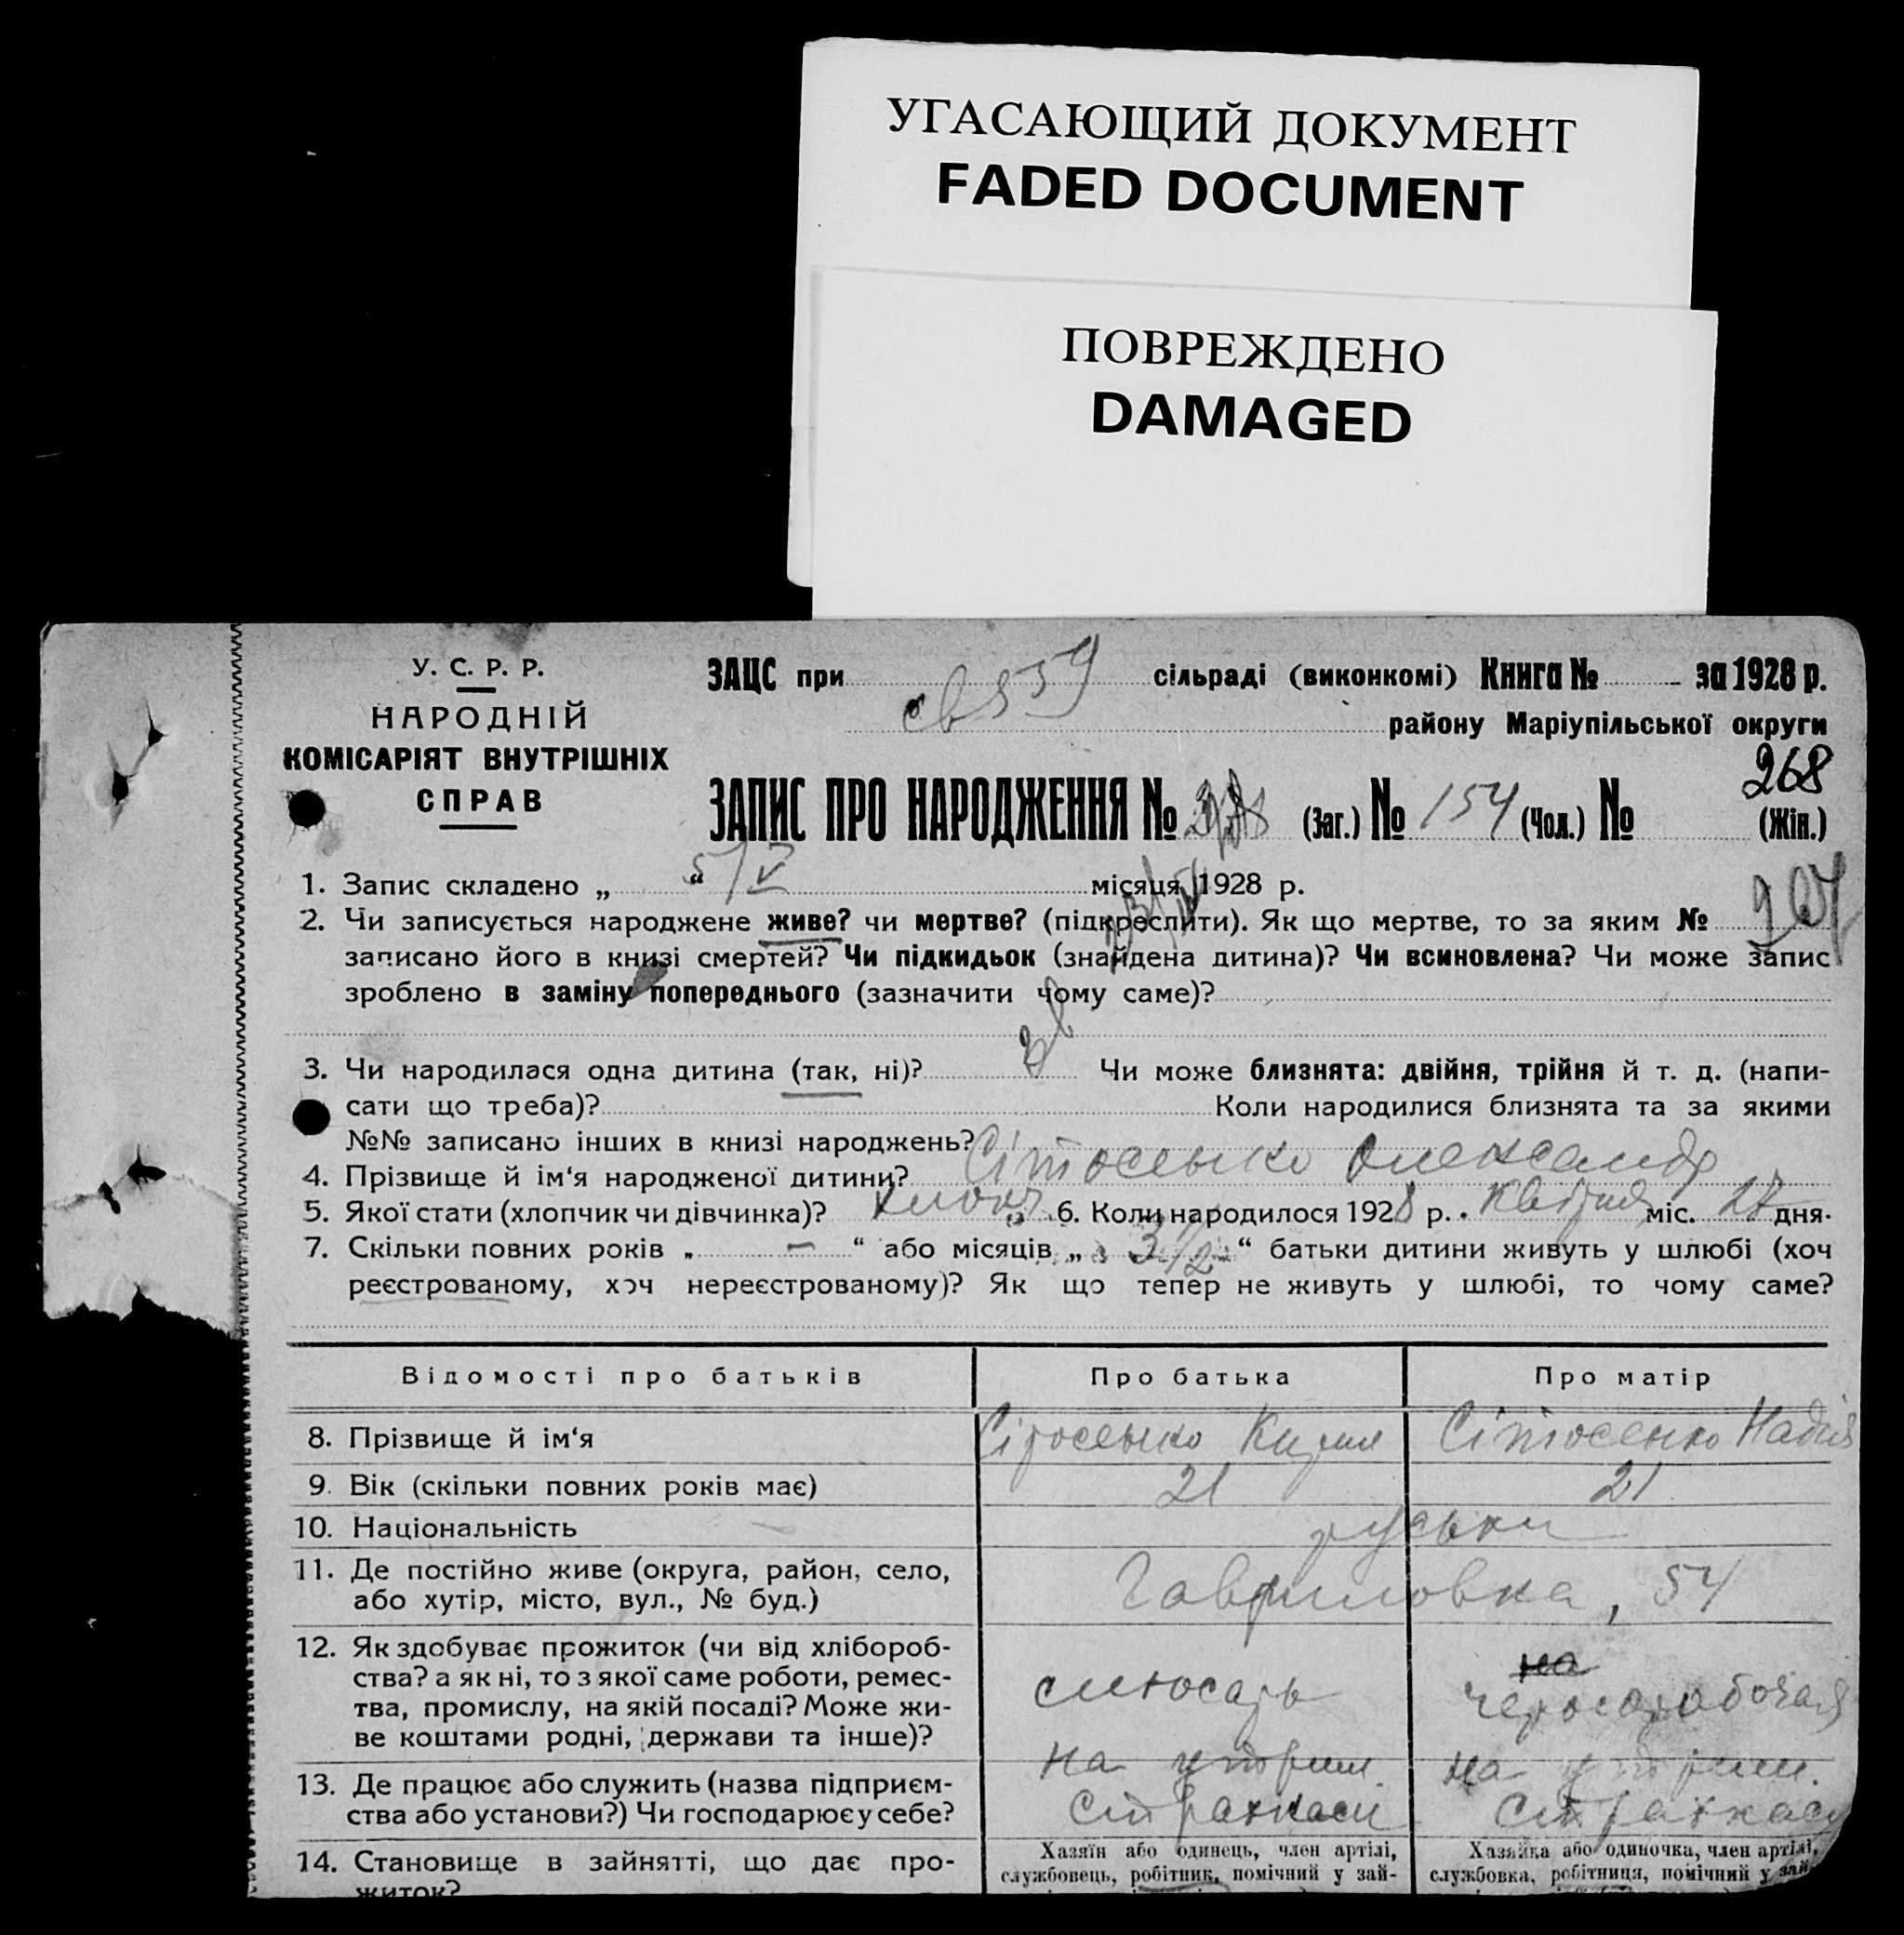 УГАСАЮЩИЙ ДОКУМЕНТ
FADED DOCUMENT
ПОВРЕЖДЕНО
DAMAGED
У. С. Р. Р.
НАРОДНІЙ
КОМІСАРІЯТ ВНУТРІШНІХ
СПРАВ
ЗАЦС при сільраді (виконкомі) Книга № за 1928 р.
району Маріупільської округи
268
ЗАПИС ПРО НАРОДЖЕННЯ № (Заг.) № 154 (Чол.) № (Жін.)
1. Запис складено „ 5/V “ місяця 1928 р.
2. Чи записується народжене живе? чи мертве? (підкреслити). Як що мертве, то за яким №
записано його в книзі смертей? Чи підкидьок (знайдена дитина)? Чи всиновлена? Чи може запис
зроблено в заміну попереднього (зазначити чому саме)?
3. Чи народилася одна дитина (так, ні)? Чи може близнята: двійня, трійня й т. д. (напи-
сати що треба)? Коли народилися близнята та за якими
№№ записано інших в книзі народжень?
4. Прізвище й ім‘я народженої дитини? Сітосенько Олександр
5. Якої стати (хлопчик чи дівчинка)? хлопч 6. Коли народилося 1928 р. Квітня міс. 27 дня.
7. Скільки повних років „ — “ або місяців „ 3 1/2 “ батьки дитини живуть у шлюбі (хоч
реєстрованому, хоч нереєстрованому)? Як що тепер не живуть у шлюбі, то чому саме?
Відомості про батьків Про батька Про матір
8. Прізвище й ім‘я Сітосенько Кирил Сітосенко Надія
9. Вік (скільки повних років має) 21 21
10. Національність руськи
11. Де постійно живе (округа, район, село,
або хутір, місто, вул., № буд.) Гавриловка, 54
12. Як здобуває прожиток (чи від хлібороб-
ства? а як ні, то з якої саме роботи, ремес-
тва, промислу, на якій посаді? Може жи-
ве коштами родні, держави та інше)? слюсарь чернорабочая
13. Де працює або служить (назва підприєм-
ства або установи?) Чи господарює у себе? на утрим. Страхкаси на утрим. Страхкаси
14. Становище в зайнятті, що дає про-
житок?
Хазяїн або одинець, член артілі,
службовець, робітник, помічний у зай-
Хазяйка або одиночка, член артілі,
службовка, робітниця, помічний у зай-